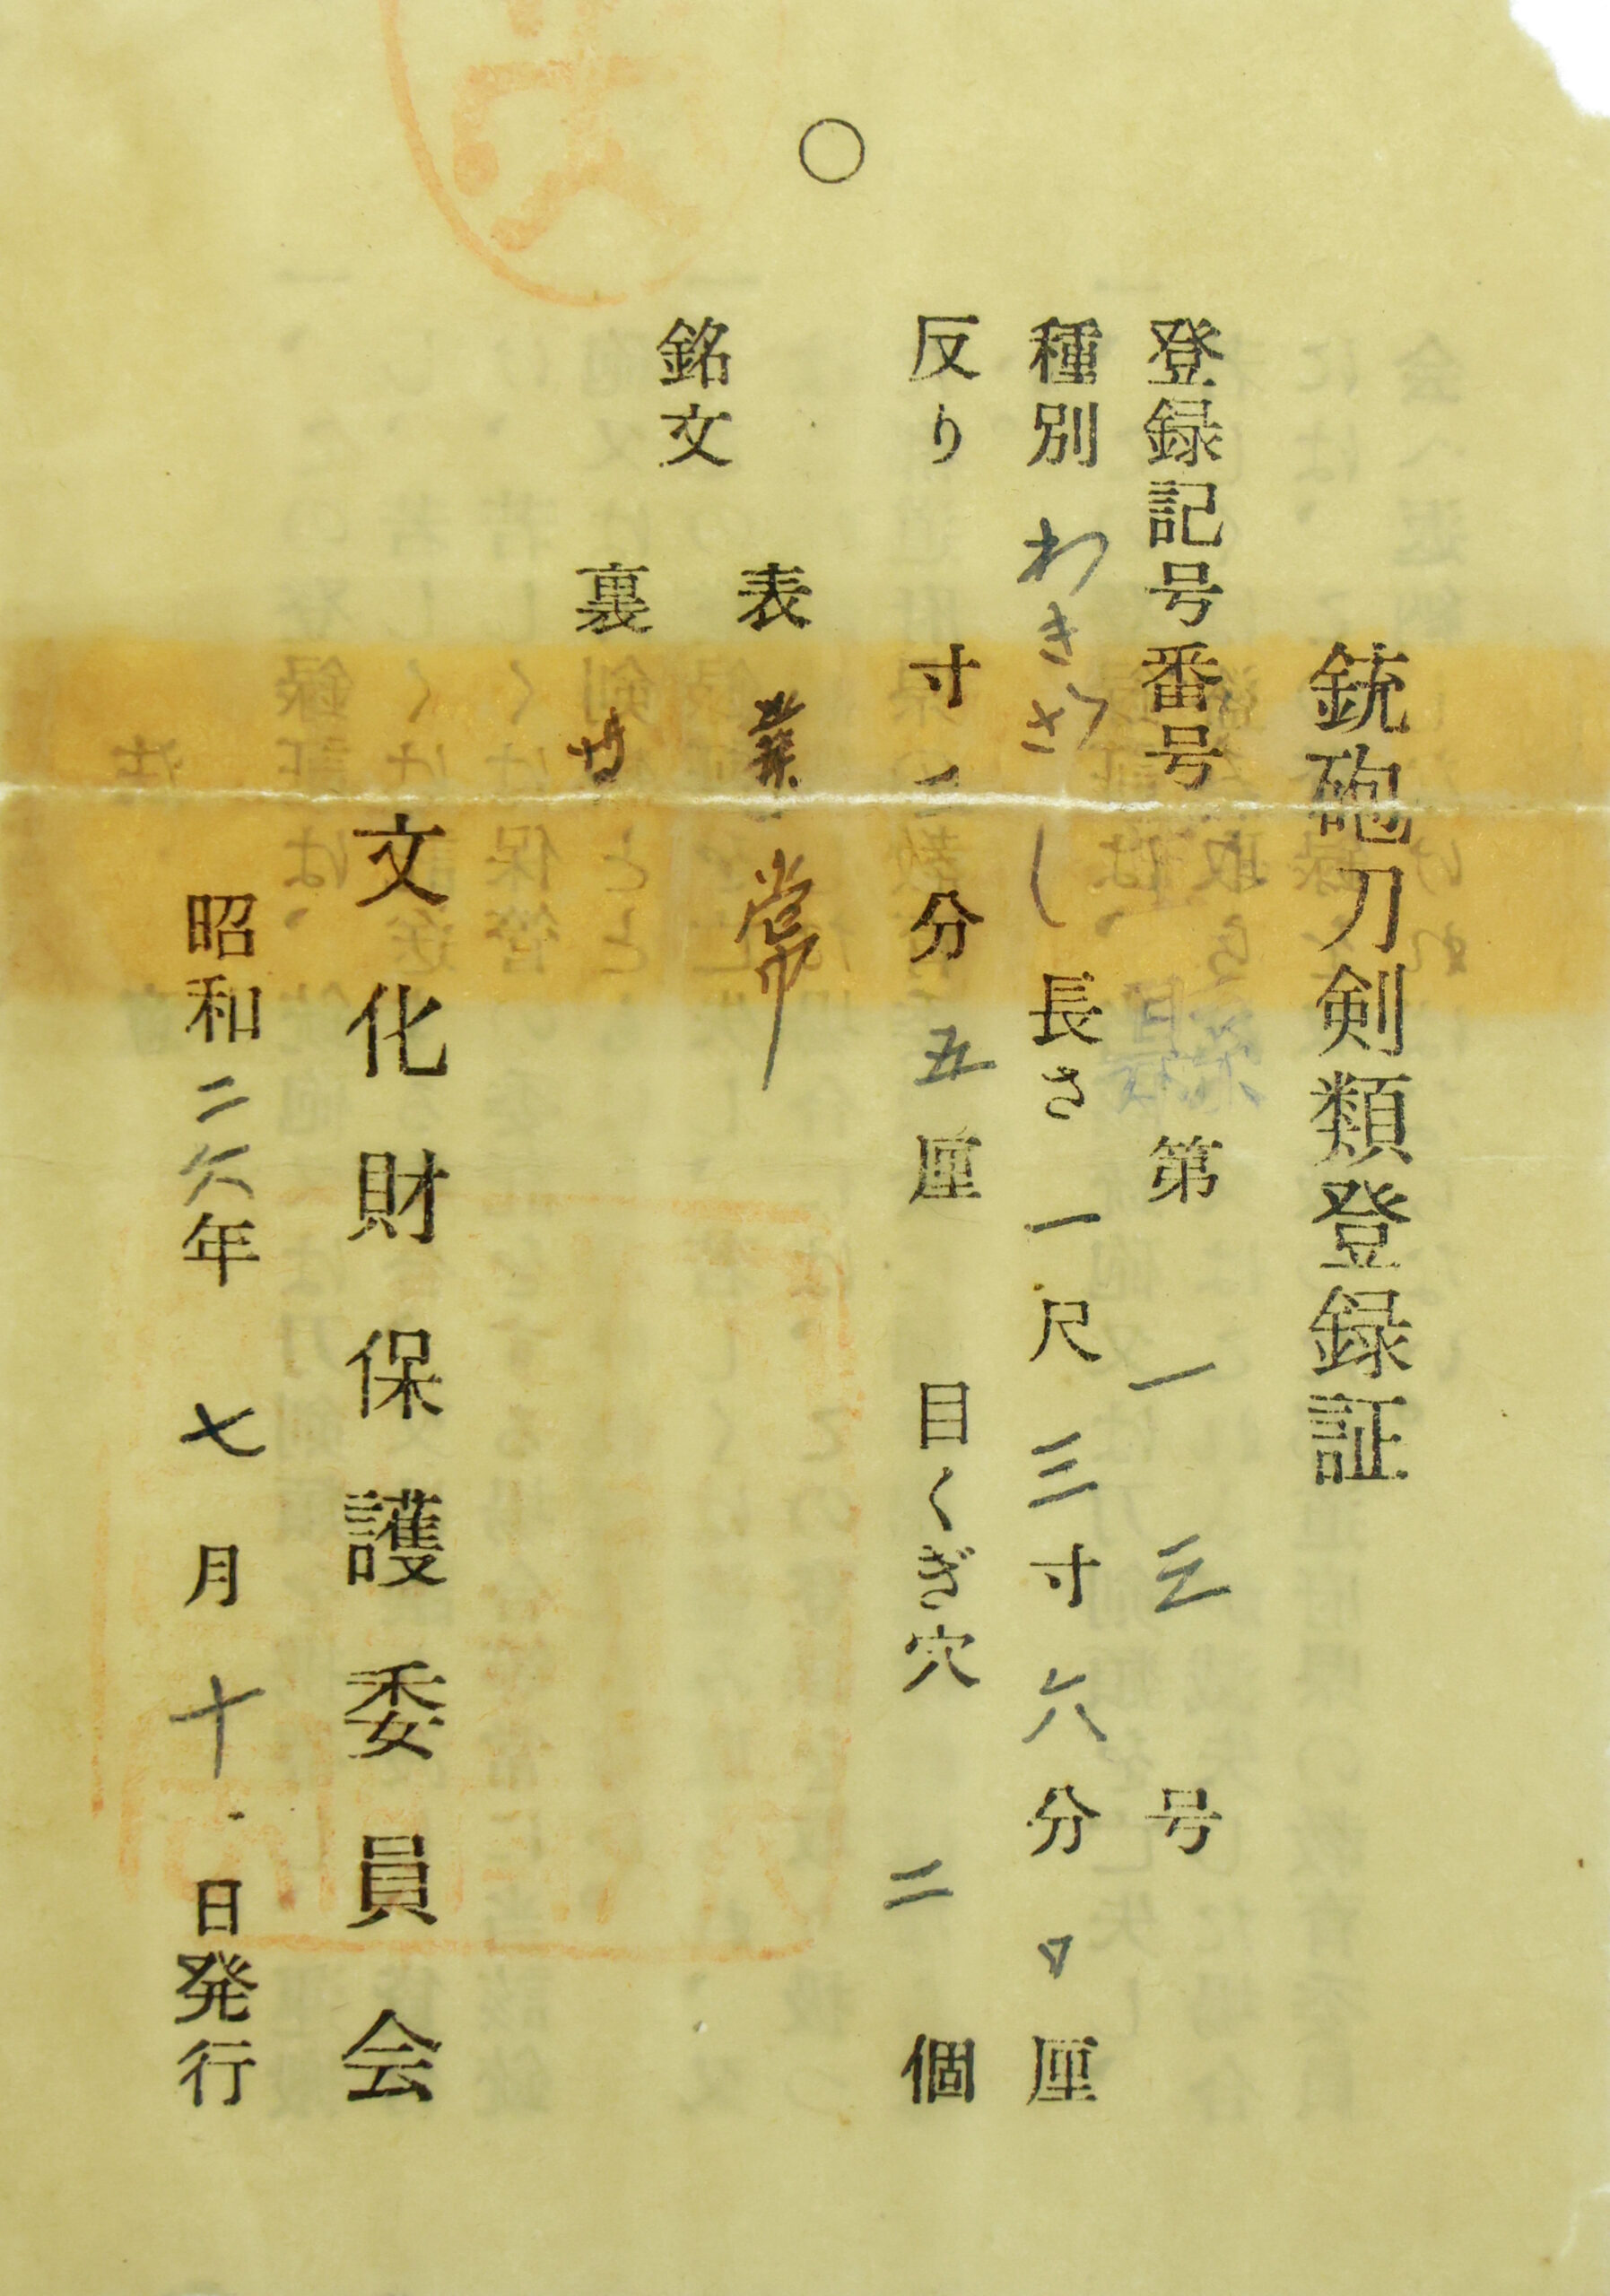 銃砲刀剣類登録証
登録記号番号 第 一三 号
種別 わきざし 長さ 一尺三寸六分 厘
反り 寸 二分五厘 目くぎ穴 二個
銘文
表 業常
裏
文化財保護委員会
昭和二六年七月十日発行